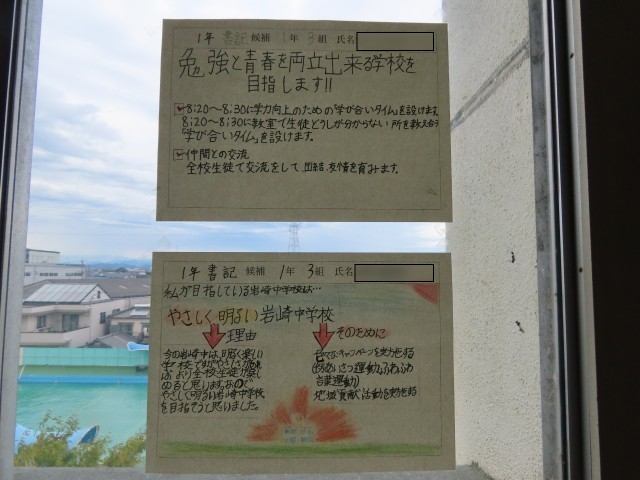 1年 書記 候補 1年 3組 氏名
勉強と青春を両立出来る学校を
目指します!!
8:20〜8:30に学力向上のための「学び合いタイム」を設けます。
8:20〜8:30に教室で生徒どうしが分からない所を教え合う
「学び合いタイム」を設けます。
仲間との交流
全校生徒で交流をして団結、友情を育みます。
1年 書記 候補 1年 3組 氏名
私が目指している岩崎中学校は…
やさしく明るい岩崎中学校
理由
今の岩崎中は、明るく楽しい
やさしく明るい岩崎中学校
を目指そうと思いました。
そのために
言葉運動)
地域貢献活動を実施する